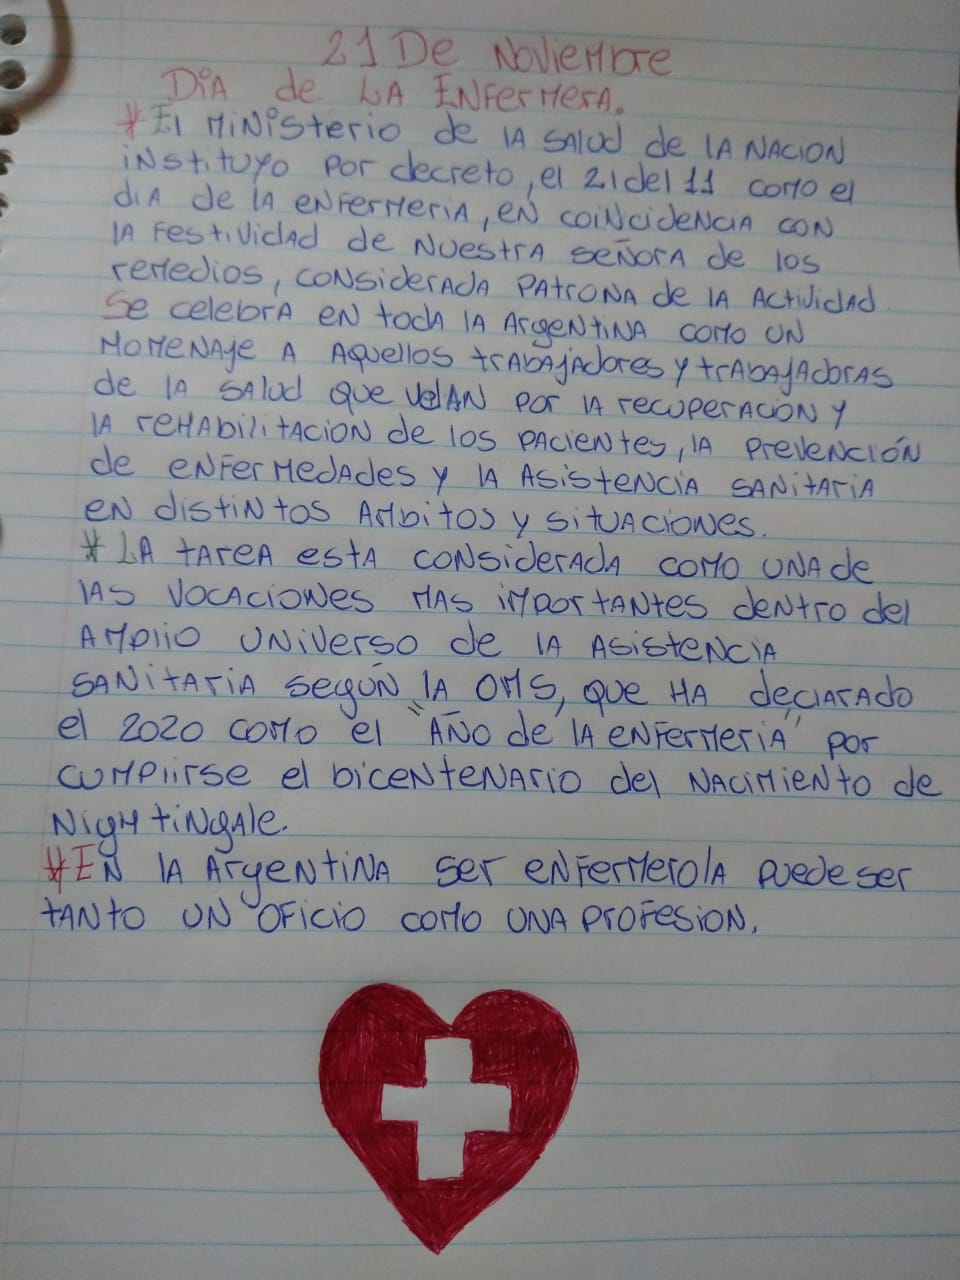 21 De Noviembre
Dia de LA Enfermera.
* El Ministerio de la salud de la Nacion
instituyo por decreto, el 21 del 11 como el
dia de la enfermeria, en coincidencia con
la festividad de Nuestra Señora de los
remedios, considerada patrona de la actividad.
Se celebra en toda la Argentina como un
homenaje a aquellos trabajadores y trabajadoras
de la salud que velan por la recuperación y
la rehabilitacion de los pacientes, la prevención
de enfermedades y la asistencia sanitaria
en distintos ambitos y situaciones.
* La tarea esta considerada como una de
las vocaciones mas importantes dentro del
amplio universo de la asistencia
sanitaria según la OMS, que ha declarado
el 2020 como el "Año de la enfermeria" por
cumplirse el bicentenario del nacimiento de
Nightingale.
* En la Argentina ser enfermero/a puede ser
tanto un oficio como una profesion.